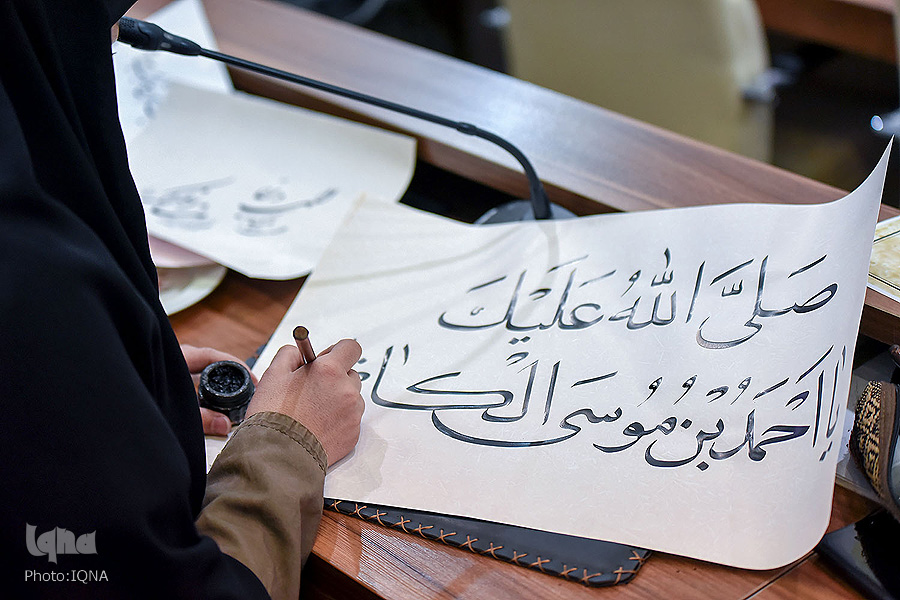 صَلَّی اللهُ عَلَیْكَ
یا اَحْمَدُ بْنُ مُوسَی الْکاظ
iqna
Photo:IQNA